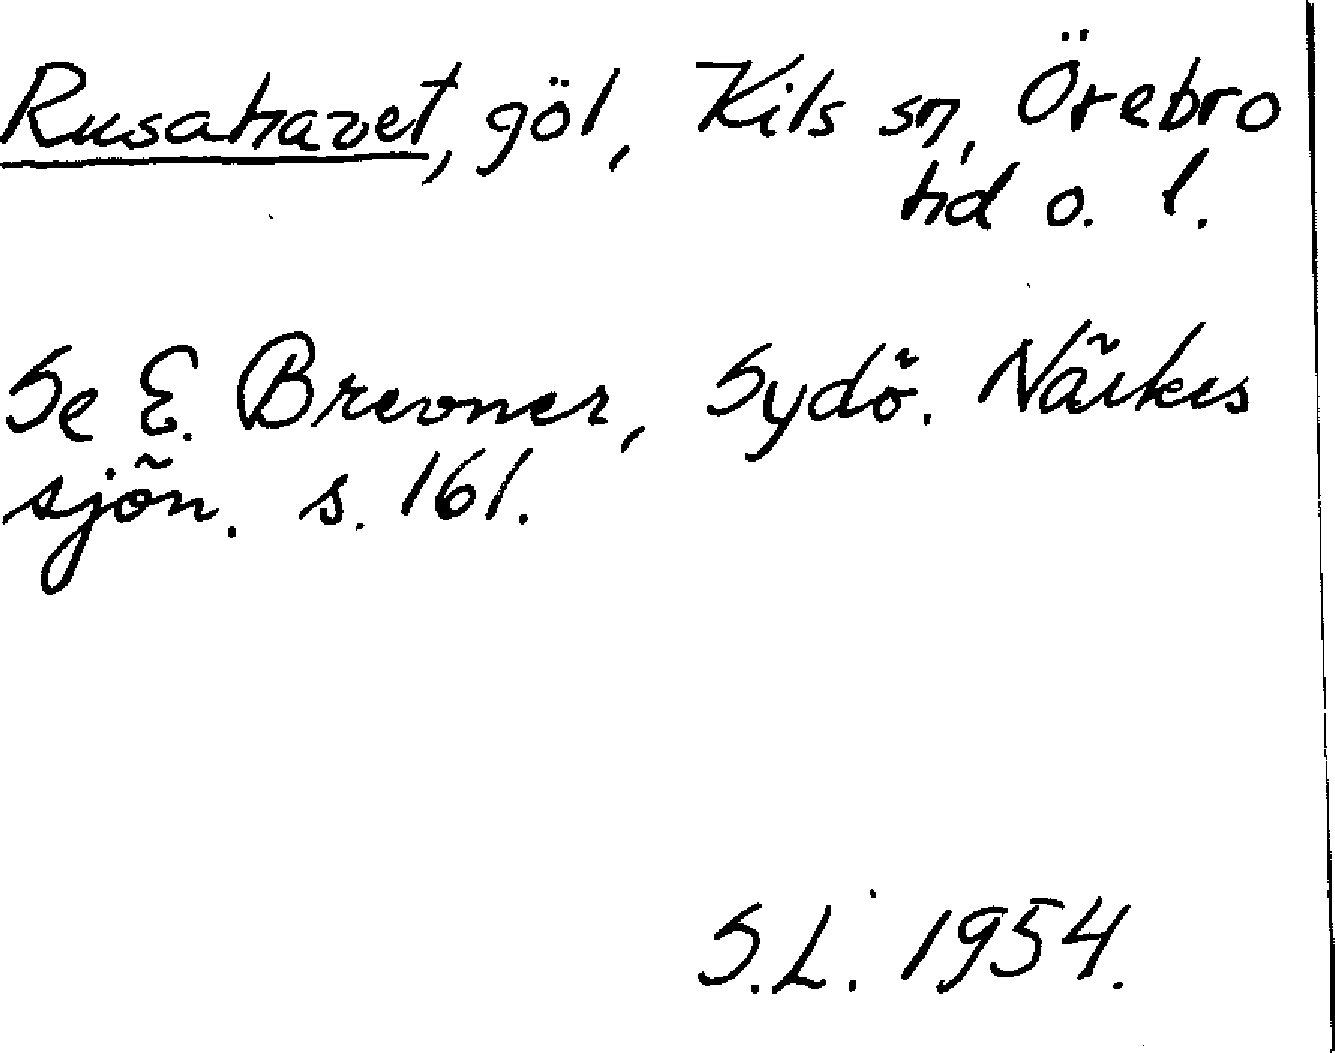 Rusahavet, göl, Kils sn, Örebro
hd o. l.
Se E. Brevner, Sydö. Närkes
sjön. s. 161.
S.L. 1954.